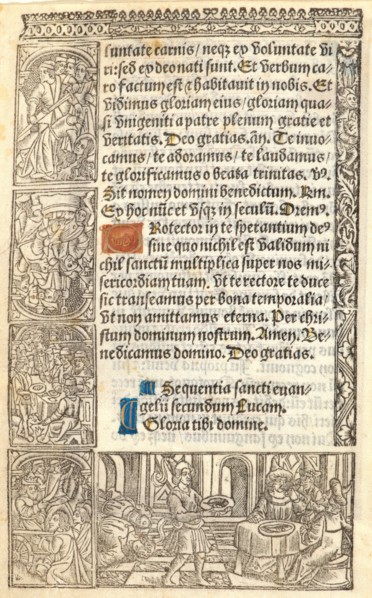 luntate carnis/ neqꝫ ex voluntate vi
ri: sed ex deo nati sunt. Et verbum ca
ro factum est & habitauit in nobis. Et
vidimus gloriam eius/ gloriam qua
si vnigeniti a patre plenum gratie et
veritatis. Deo gratias. añ. Te inuo
camus/ te adoramus/ te laudamus/
te glorificamus o beata trinitas. v.
Sit nomen domini benedictum. Rm̄.
Ex hoc nūc et vsqꝫ in seculū. Oremꝰ.
Protector in te sperantium de
sine quo nichil est validum ni
chil sanctū multiplica super nos mi
sericordiam tuam. vt te rectore te duce
sic transeamus per bona temporalia/
vt non amittamus eterna. Per chri
stum dominum nostrum. Amen. Be-
nedicamus domino. Deo gratias.
Sequentia sancti euan-
gelii secundum Lucam.
Gloria tibi domine.